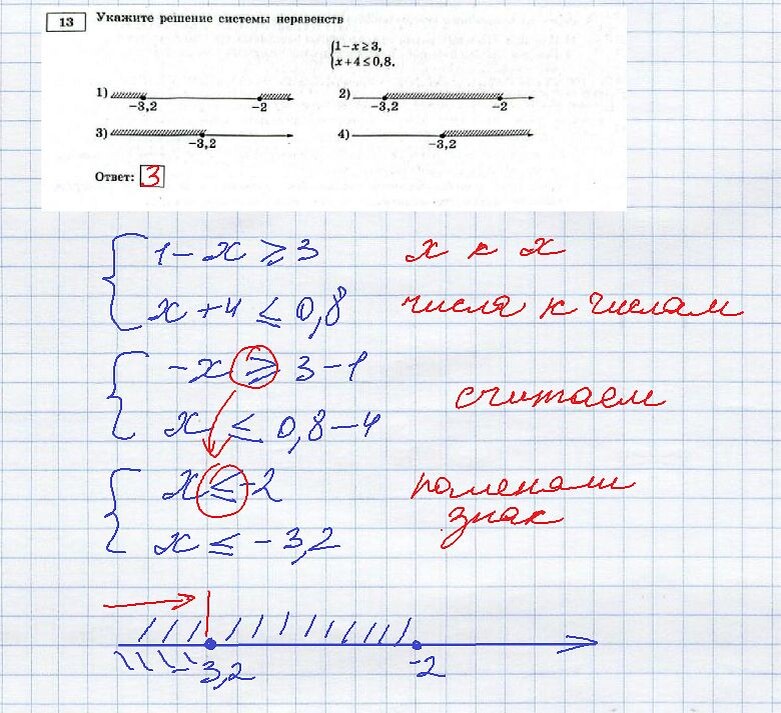 13 Укажите решение системы неравенств
1−x≥3,
x+4≤0,8.
1) −3,2 −2
2) −3,2 −2
3) −3,2
4) −3,2
Ответ: 3
1−x≥3 x к x
x+4≤0,8 числа к числам
−x≥3−1
считаем
x≤0,8−4
x≤−2 поменяли
знак
x≤−3,2
−3,2 −2